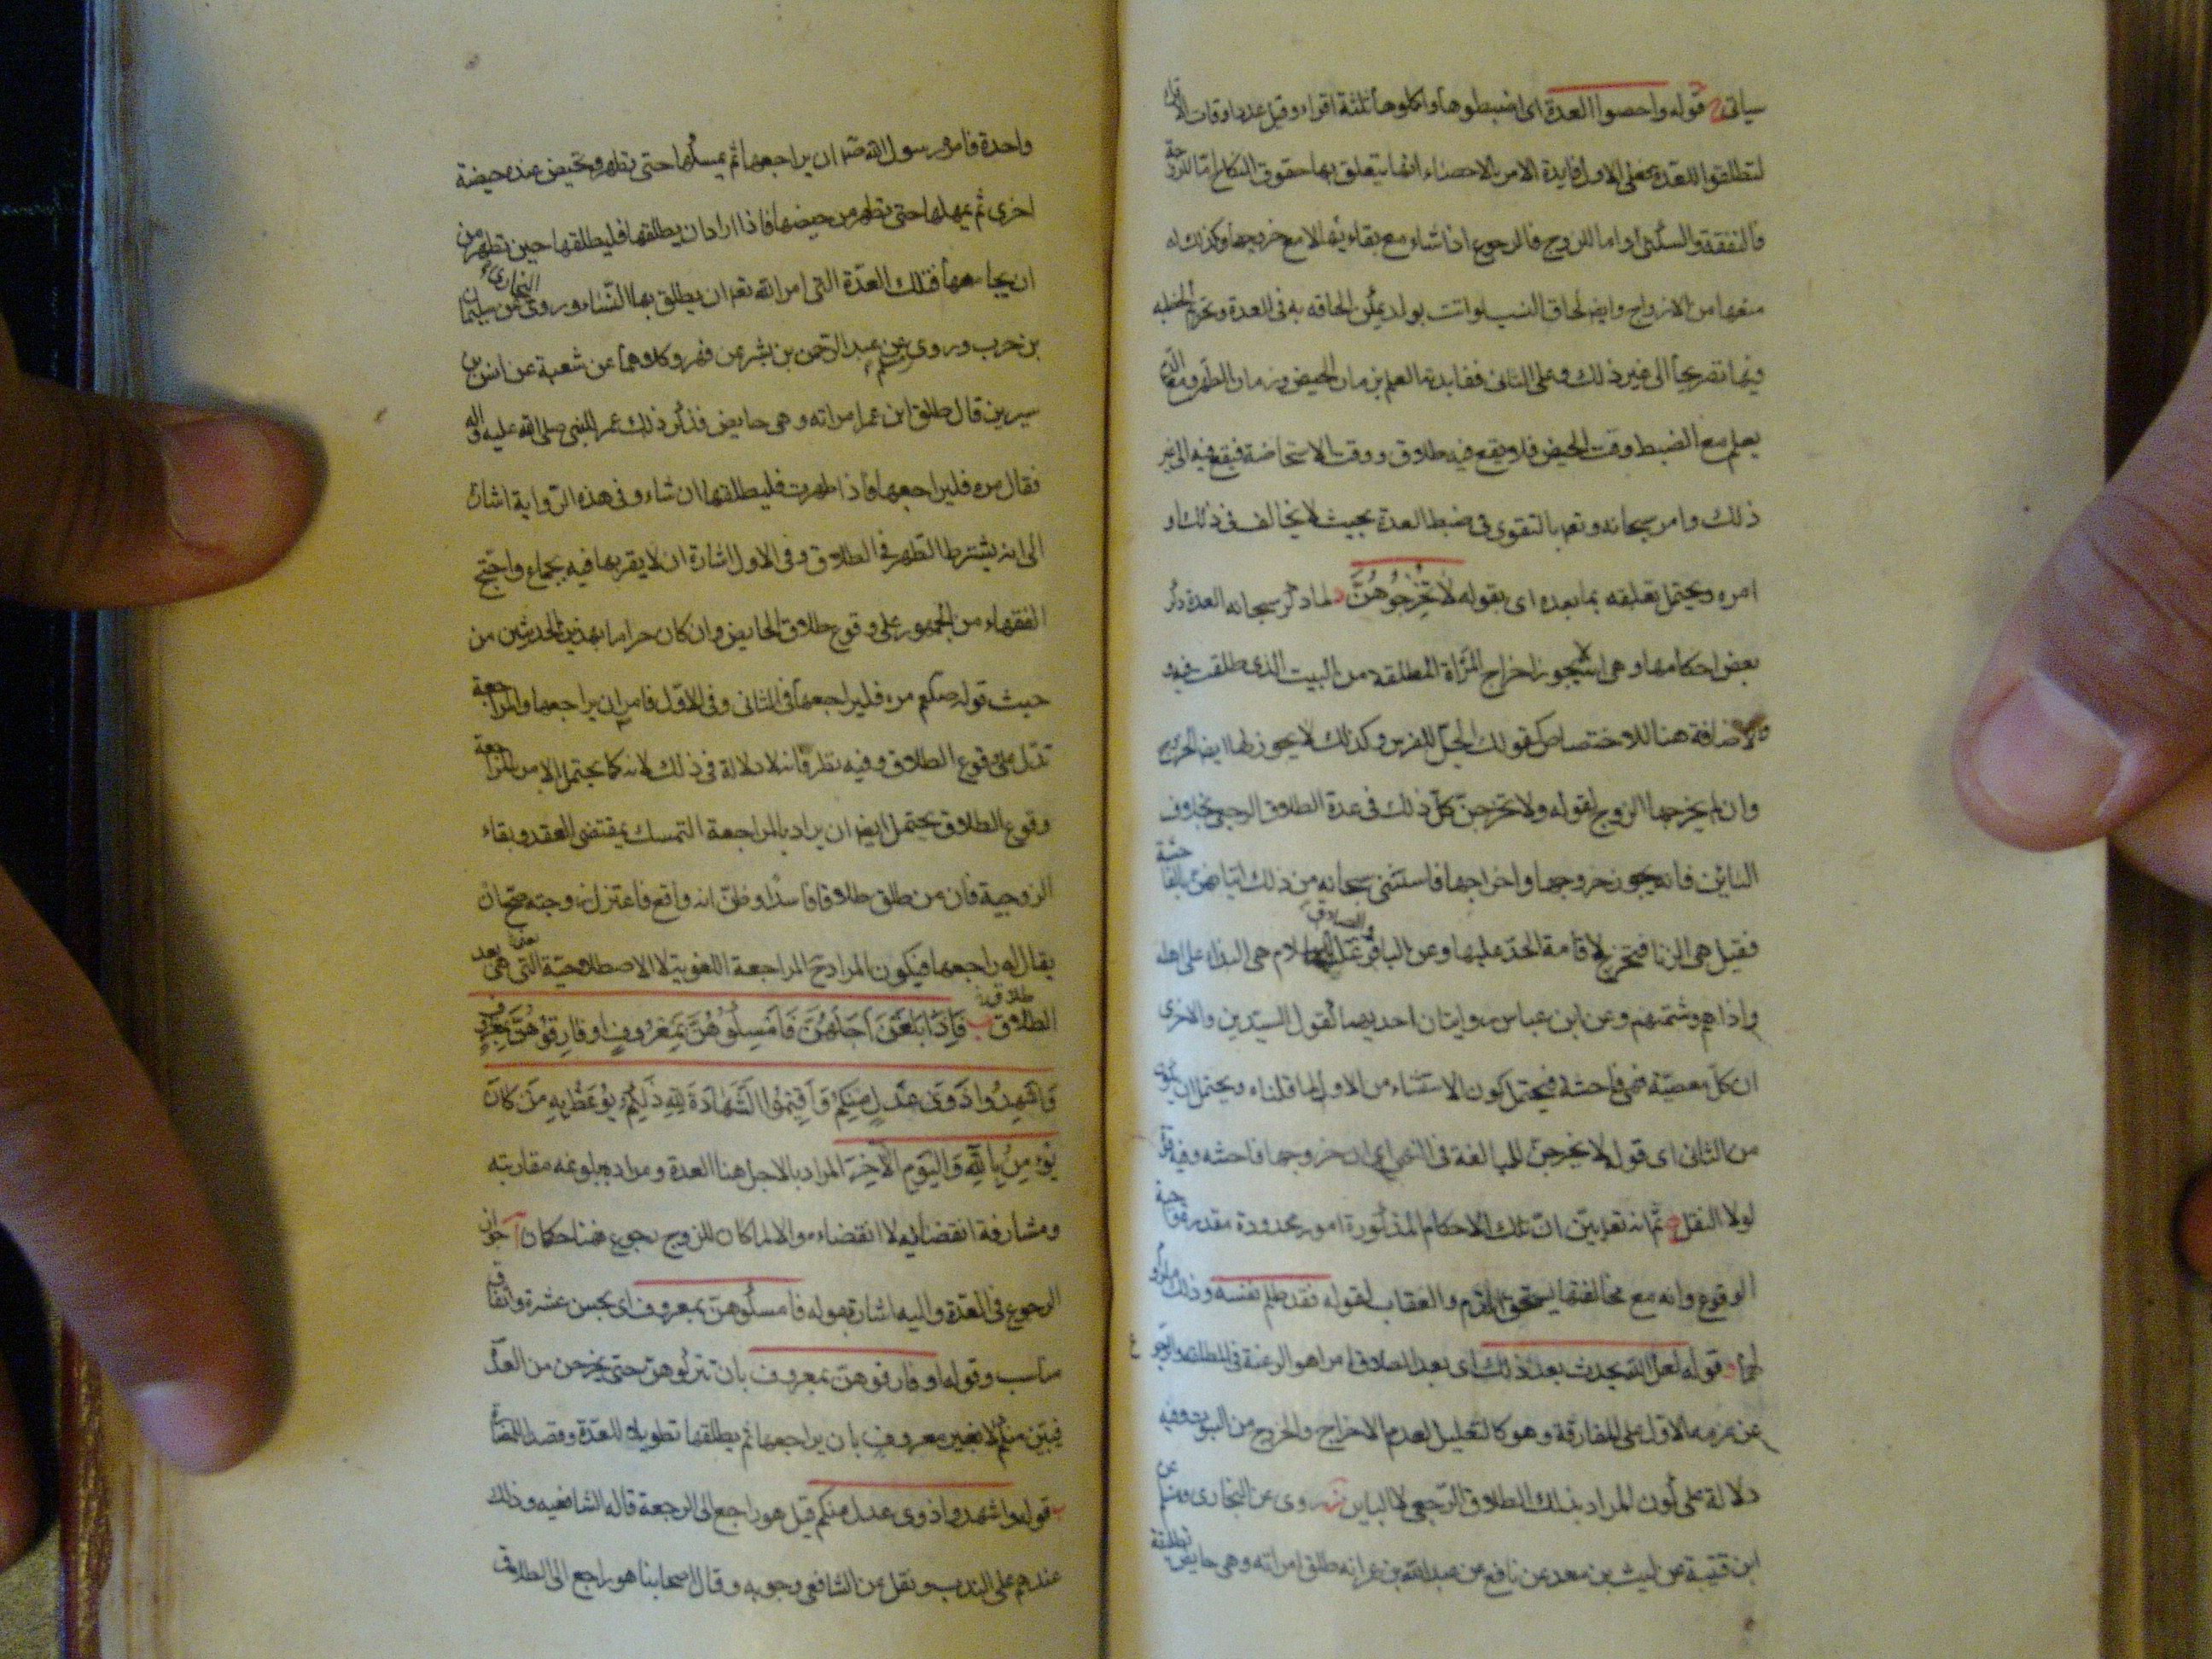 سياتي قوله واحصوا العدة اى اضبطوها واكملوها ثلثة اقراء وقيل عددا وقات
لتطلقوا للعدة فعلى الاول فايدة الامر بالاحصاء انها يتعلق بها حقوق النكاح اما للزوجة
فالنفقة والسكنى واما للزوج فالرجوع ان شاء مع بقائها لا مع خروجها وكذلك له
منعها من الازواج وايضا لحاق النسب لو اتت بولد يمكن الحاقه به فى العدة وتحريم الخطبه
فيها تصريحا الى غير ذلك وعلى الثانى ففايدته العلم بزمان الحيض وزمان الطهر
يعلم مع الضبط وقت الحيض فلا يقع فيه طلاق ووقت الاستحاضة فيقع فيه الى غير
ذلك وامر سبحانه وتعا بالتقوى فى ضبط العدة بحيث لا يخالف فى ذلك او
امره ويحتمل تعلقه بما بعده اى بقوله لَا تُخْرِجُوهُنَّ لما ذكر سبحانه العدة ذكر
بعض احكامها وهى انه لا يجوز اخراج المرأة المطلقة من البيت الذى طلقت فيه
والاضافة هنا للاختصاص كقولك الجل للفرس وكذلك لا يجوز لها ايضا الخروج
وان لم يخرجها الزوج لقوله ولا تخرجن كل ذلك فى عدة الطلاق الرجعى بخلاف
البائن فانه يجوز خروجها واخراجها فاستثنى سبحانه من ذلك اتيانهن بالفاحشة
فقيل هى الزنا فتخرج لاقامة الحد عليها وعن الباقر والصادق عليهما السلام هى البذاء على اهله
واذاهم وشتمهم وعن ابن عباس روايتان احديهما كقول السيدين والاخرى
ان كل معصية فهى فاحشة فيحتمل كون الاستثناء من الاول لما قلناه ويحتمل ان يكون
من الثانى اى قوله لا يخرجن للمبالغة فى النهى اى ان خروجها فاحشه وفيه قوة
لولا النقل ثم انه تعا بين ان تلك الاحكام المذكورة امور محدودة مقدرة واجبة
الوقوع وانه مع مخالفتها يستحق الذم والعقاب لقوله فقد ظلم نفسه وذلك
قوله لعل الله يحدث بعد ذلك اى بعد الطلاق امرا هو الرغبة فى المطلقه والرجوع
عن عزمه الاول على المفارقة وهو كالتعليل لعدم الاخراج والخروج من البيوت وفيه
دلالة على كون المراد بذلك الطلاق الرجعى لا الباين روى عن البخارى ومسلم عن
ابن قتيبة عن ليث بن سعد عن نافع عن عبد الله بن عمر انه طلق امراته وهى حايض تطليقة
واحدة فامره رسول الله ص ان يراجعها ثم يمسكها حتى تطهر وتحيض عنده حيضة
اخرى ثم يمهلها حتى تطهر من حيضها فاذا اراد ان يطلقها فليطلقها حين تطهر من
ان يجامعها فتلك العدة التى امر الله تعا ان يطلق بها النساء وروى البخارى عن سليمان
بن حرب وروى مسلم عن عبد الرحمن بن بشر عن وكلاهما عن شعبة عن انس بن
سيرين قال طلق ابن عمر امراته وهى حايض فذكر ذلك عمر للنبى صلى الله عليه واله
فقال مره فليراجعها فاذا طهرت فليطلقها ان شاء وفى هذه الرواية اشارة
الى انه يشترط الطهر فى الطلاق وفى الاول اشارة ان لا يقربها فيه بجماع واحتج
الفقهاء من الجمهور على وقوع طلاق الحايض وان كان حراما بهذين الحديثين من
حيث قوله ص مره فليراجعها فى الثانى وفى الاول فامره ان يراجعها والمراجعة
تدل على وقوع الطلاق وفيه نظر فانه لا دلالة فى ذلك لانه كما يحتمل الامر بالمراجعة
وقوع الطلاق يحتمل ايضا ان يراد بالمراجعة التمسك بمقتضى العقد وبقاء
الزوجية فان من طلق طلاقا فاسدا وظن انه واقع فاعتزل زوجته صح ان
يقال له راجعها فيكون المراد ح المراجعة اللغوية لا الاصطلاحية التى هى بعد
الطلاق فَإِذَا بَلَغْنَ أَجَلَهُنَّ فَأَمْسِكُوهُنَّ بِمَعْرُوفٍ او فَارِقُوهُنَّ بِمَعْرُوفٍ
وَأَشْهِدُوا ذَوَىْ عَدْلٍ مِنْكُمْ وَأَقِيمُوا الشَّهَادَةَ لِلّهِ ذَلِكُمْ يُوعَظُ بِهِ مَنْ كَانَ
يُؤْمِنُ بِاللّهِ وَاليَوْمِ الْآخِرِ المراد بالاجل هنا العدة ومراده ببلوغه مقاربته
ومشارفة انقضائه لا انقضاءه والا لما كان للزوج رجوع فهنا احكام آ جواز
الرجوع فى العدة واليه اشارة بقوله فامسكوهن بمعروف اى بحسن عشرة وانفاق
مناسب وقوله او فارقوهن بمعروف بان تتركوهن حتى يخرجن من العدة
فيبن منكم لا بغير معروف بان يراجعها ثم يطلقها تطويلا للعدة وقصدا للمضارة
ب قوله واشهدوا ذوى عدل منكم قيل هو راجع الى الرجعة قاله الشافعيه وذلك
عندهم على الندب ونقل عن الشافعى وجوبه وقال اصحابنا هو راجع الى الطلاق